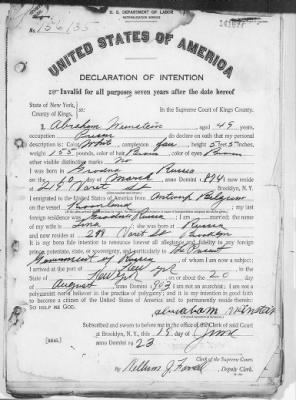 U. S. DEPARTMENT OF LABOR
NATURALIZATION SERVICE
No. 156135
UNITED STATES OF AMERICA
DECLARATION OF INTENTION
Invalid for all purposes seven years after the date hereof
State of New York,
County of Kings, ss: In the Supreme Court of Kings County.
I, Abraham Weinstein aged 49 years,
occupation do declare on oath that my personal
description is: Color White complexion height 5 feet 5 inches,
weight 155 pounds, color of hair Brown color of eyes Brown
other visible distinctive marks no
I was born in Russia
on the day of March anno Domini 1874 now reside
at 219 Varet St Brooklyn, N. Y.
I emigrated to the United States of America from Antwerp Belgium
on the vessel my last
foreign residence was Russia I am married; the name
of my wife is she was born at Russia
and now resides at 219 Varet St Brooklyn
It is my bona fide intention to renounce forever all allegiance and fidelity to any foreign
prince, potentate, state, or sovereignty, and particularly to The Present
Government of Russia of whom I am now a subject:
I arrived at the port of New York
State of New York on or about the 20 day
of August anno Domini 1903 I am not an anarchist; I am not a
polygamist nor a believer in the practice of polygamy; and it is my intention in good faith
to become a citizen of the United States of America and to permanently reside therein:
SO HELP ME GOD.
Subscribed and sworn to before me in the office of the Clerk of said Court
at Brooklyn, N. Y., this 18 day of June
[SEAL] anno Domini 1923
Clerk of the Supreme Court.
By William J. , Deputy Clerk.